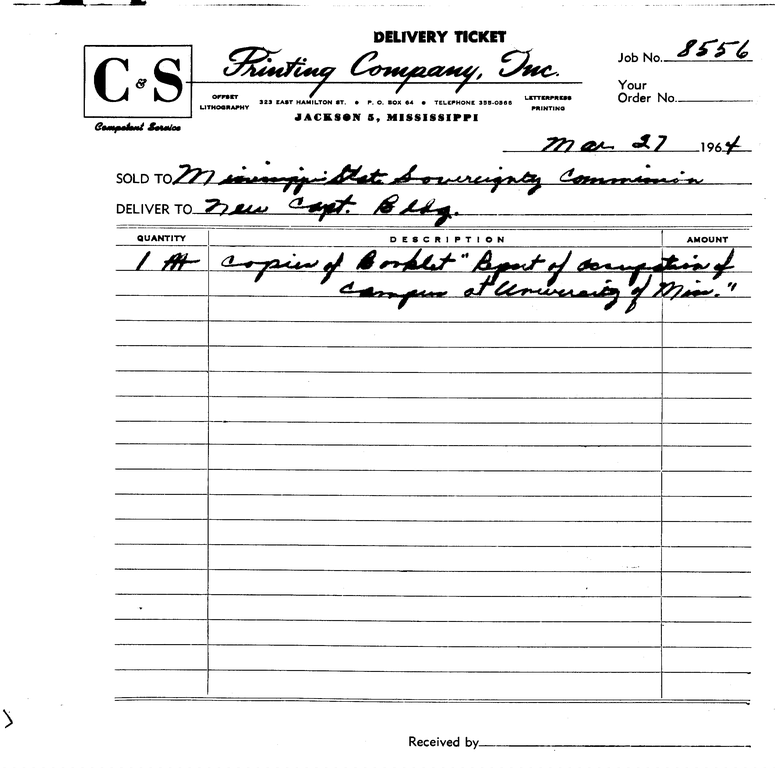 DELIVERY TICKET
C & S
Printing Company, Inc.
Job No. 8556
Your
Order No.
OFFSET
LITHOGRAPHY
323 EAST HAMILTON ST. • P. O. BOX 64 • TELEPHONE 355-0366
LETTERPRESS
PRINTING
Competent Service
JACKSON 5, MISSISSIPPI
Mar 27 1964
SOLD TO Mississippi State Sovereignty Commission
DELIVER TO New Capt. Bldg.
QUANTITY DESCRIPTION AMOUNT
1 M Copies of Booklet "Report of occupation of
Campus at University of Miss."
Received by